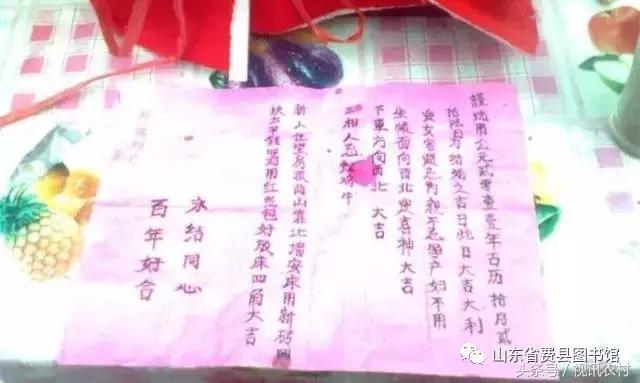 用公元贰零壹壹年古历拾月贰
拾日为结婚之吉日此日大吉大利
女客忌忌孕产妇不用
坐帐面向西北喜神大吉
下車方向西北 大吉
相人忌蛇鸡牛
新人在堂房间山靠北墙安床用新砖四
块钱四用红包好放床四角大吉
永结同心
百年好合
山东省费县图书馆
头条号／视讯农村